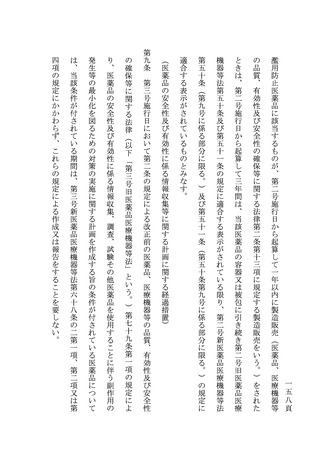 一五八頁
濫用防止医薬品に該当するものが、第二号施行日から起算して一年以内に製造販売（医薬品、医療機器等
の品質、有効性及び安全性の確保等に関する法律第二条第十三項に規定する製造販売をいう。）をされた
ときは、第二号施行日から起算して三年間は、当該医薬品の容器又は被包に引き続き第二号旧医薬品医療
機器等法第五十条及び第五十一条の規定に適合する表示がされている限り、第二号新医薬品医療機器等法
第五十条（第九号に係る部分に限る。）及び第五十一条（第五十条第九号に係る部分に限る。）の規定に
適合する表示がされているものとみなす。
（医薬品の安全性及び有効性に係る情報収集等に関する計画に関する経過措置）
第九条　第三号施行日において第二条の規定による改正前の医薬品、医療機器等の品質、有効性及び安全性
の確保等に関する法律（以下「第三号旧医薬品医療機器等法」という。）第七十九条第一項の規定によ
り、医薬品の安全性及び有効性に係る情報収集、調査、試験その他医薬品を使用することに伴う副作用の
発生等の最小化を図るための対策の実施に関する計画を作成する旨の条件が付されている医薬品について
は、当該条件が付されている期間は、第三号新医薬品医療機器等法第六十八条の二第一項、第二項又は第
四項の規定にかかわらず、これらの規定による作成又は報告をすることを要しない。